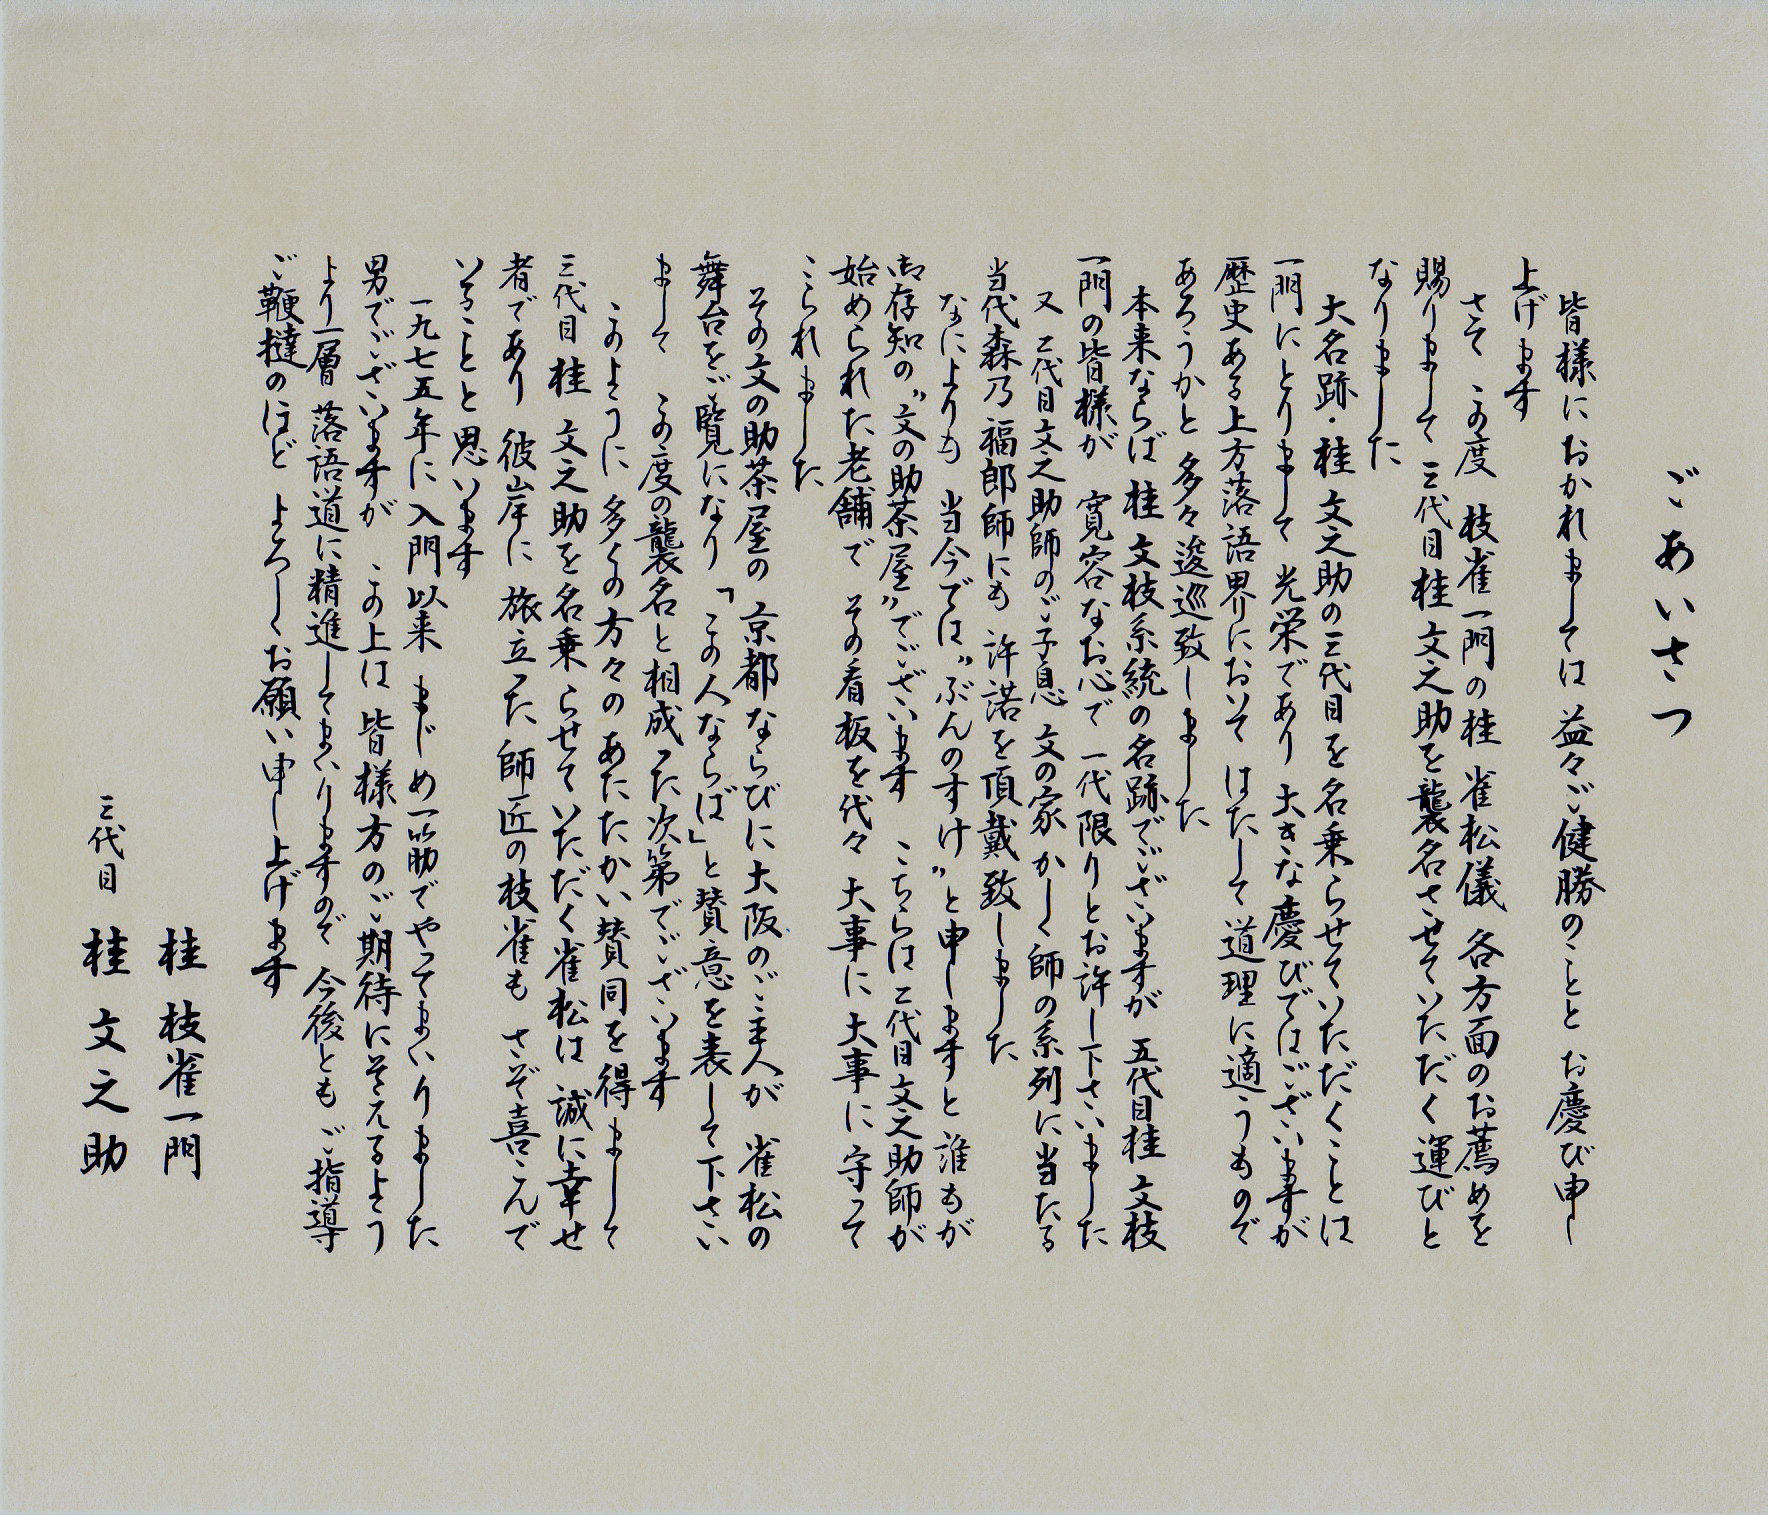 ごあいさつ
皆様におかれましては 益々ご健勝のことと お慶び申し
上げます
さて この度 枝雀一門の桂 雀松儀 各方面のお薦めを
賜りまして 三代目桂 文之助を襲名させていただく運びと
なりました
大名跡・桂 文之助の三代目を名乗らせていただくことは
一門にとりまして 光栄であり 大きな慶びではございますが
歴史ある上方落語界において はたして 道理に適うもので
あろうかと 多々逡巡致しました
本来ならば 桂 文枝系統の名跡でございますが 五代目桂 文枝
一門の皆様が 寛容なお心で 一代限りとお許し下さいました
又 二代目文之助師のご子息 文の家 かしく師の系列に当たる
当代森乃 福郎師にも 許諾を頂戴致しました
なによりも 当今では〝ぶんのすけ〟と申しますと 誰もが
御存知の〝文の助茶屋〟でございます こちらは二代目文之助師が
始められた老舗で その看板を代々 大事に大事に守って
こられました
その文の助茶屋の 京都ならびに大阪のご主人が 雀松の
舞台をご覧になり「この人ならば」と賛意を表して下さい
まして この度の襲名と相成った次第でございます
このように 多くの方々の あたたかい賛同を得まして
三代目桂 文之助を名乗らせていただく雀松は 誠に幸せ
者であり 彼岸に 旅立った師匠の枝雀も さぞ喜こんで
いることと思います
一九七五年に入門以来 まじめ一筋でやってまいりました
男でございますが この上は 皆様方のご期待にそえるよう
より一層 落語道に精進してまいりますので 今後とも ご指導
ご鞭撻のほど よろしくお願い申し上げます
桂 枝雀一門
三代目 桂 文之助